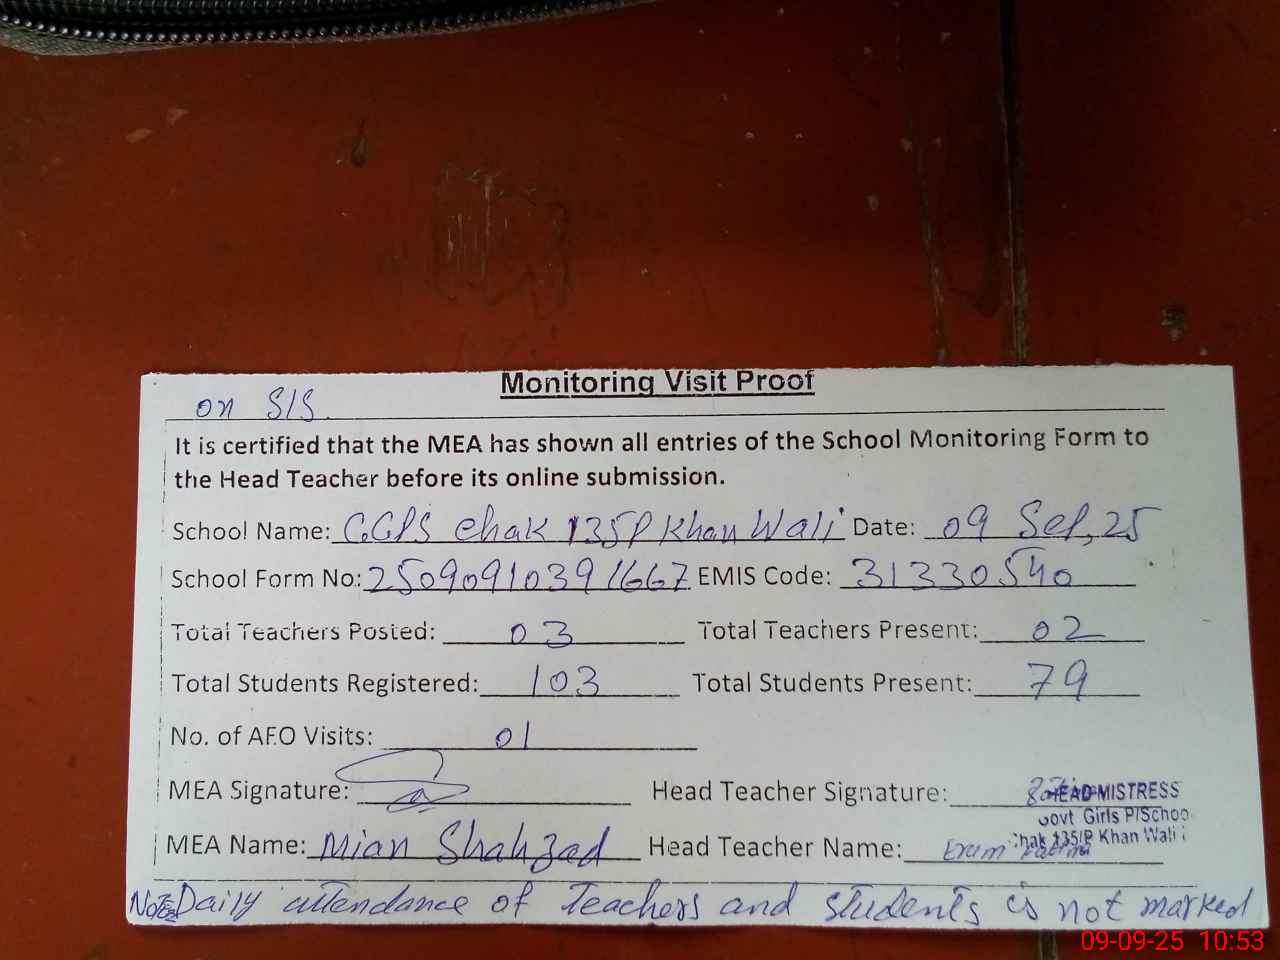 Monitoring Visit Proof
on SIS.
It is certified that the MEA has shown all entries of the School Monitoring Form to
the Head Teacher before its online submission.
School Name: G.GPS Chak 135P Khan Wali Date: 09 Sep, 25
School Form No: 25090910391667 EMIS Code: 31330540
Total Teachers Posted: 03 Total Teachers Present: 02
Total Students Registered: 103 Total Students Present: 79
No. of AEO Visits: 01
MEA Signature: Head Teacher Signature:
HEAD MISTRESS
Govt Girls P/Schoo
Chak 135/P Khan Wali
MEA Name: Mian Shahzad Head Teacher Name: Erum Fatima
Note: Daily attendance of Teachers and students is not marked
09-09-25 10:53